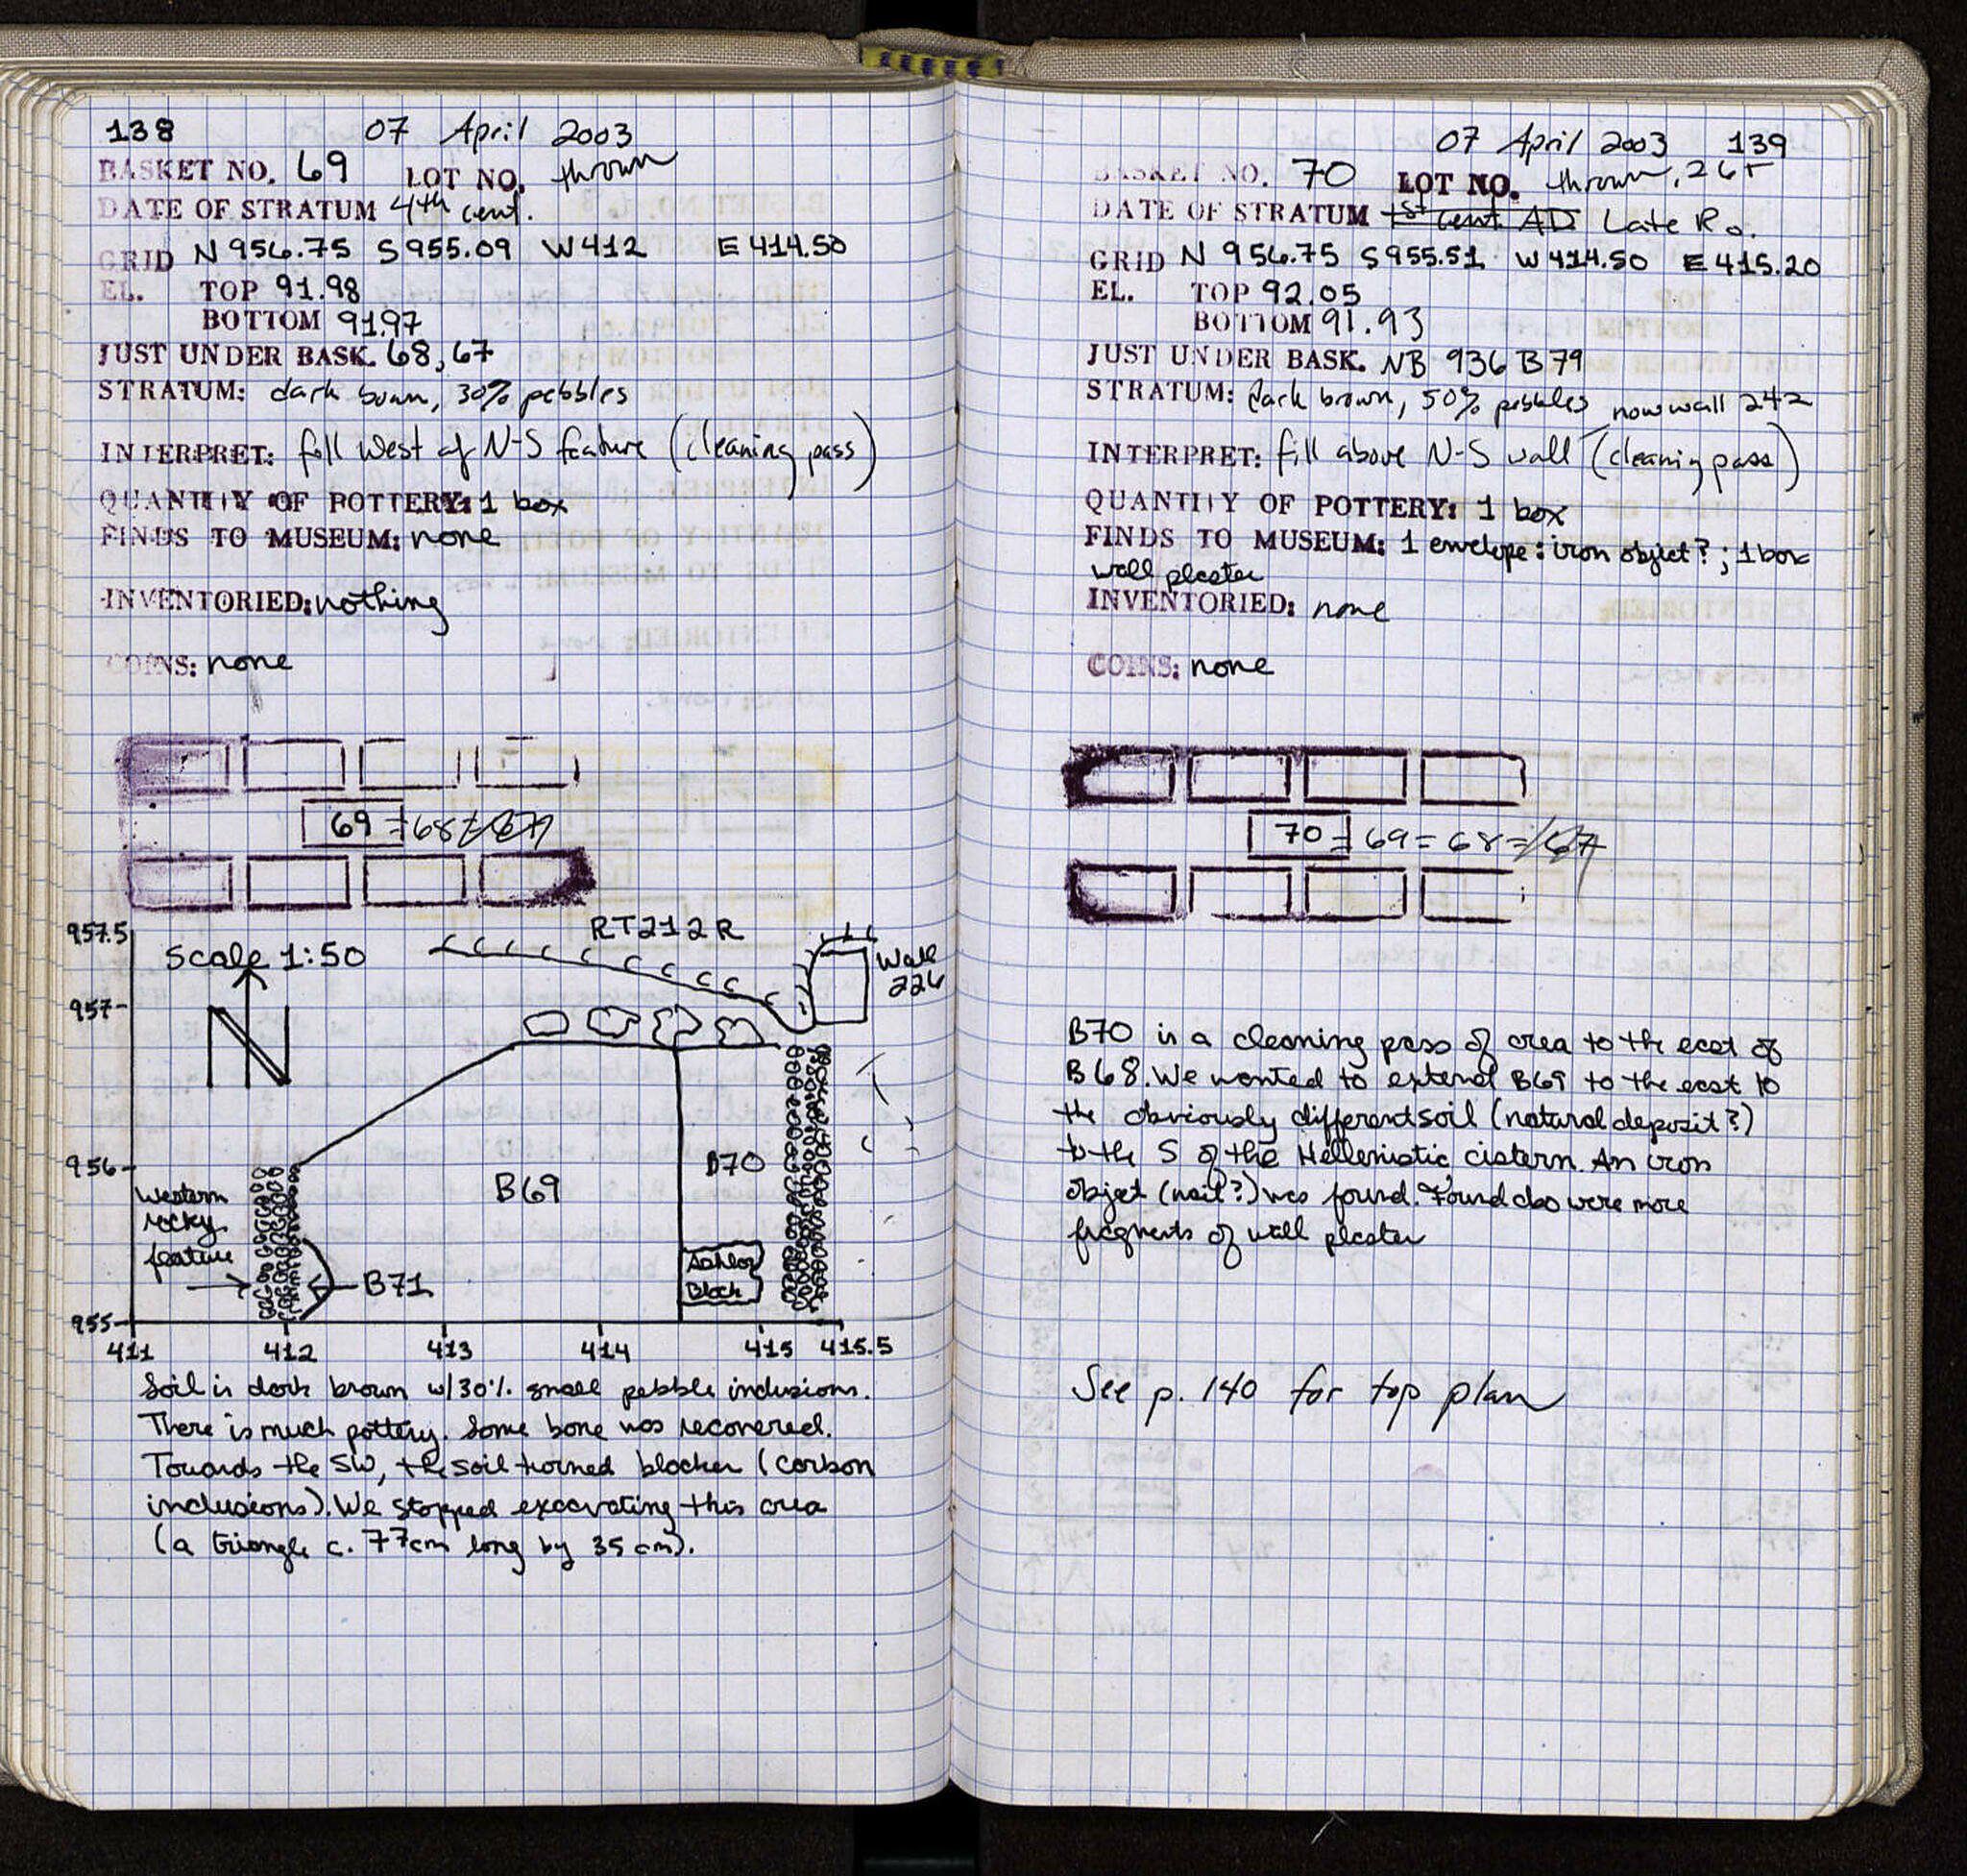 138 07 April 2003
BASKET NO. 69 LOT NO. thrown
DATE OF STRATUM 4th cent.
GRID N 956.75 S 955.09 W 412 E 414.50
EL. TOP 91.98
BOTTOM 91.97
JUST UNDER BASK. 68, 67
STRATUM: dark brown, 30% pebbles
INTERPRET: fill west of N-S feature (cleaning pass)
QUANTITY OF POTTERY: 1 box
FINDS TO MUSEUM: none
INVENTORIED: nothing
COINS: none
69 = 68 = 67
957.5
Scale 1:50
RT212R
Wall
226
957
N
956
Western
rocky
feature
B69
B70
Ashlar
Block
B71
955
411 412 413 414 415 415.5
Soil is dark brown w/30% small pebble inclusions.
There is much pottery. Some bone was recovered.
Towards the SW, the soil turned blacker (carbon
inclusions). We stopped excavating this area
(a triangle c. 77cm long by 35 cm).
07 April 2003 139
BASKET NO. 70 LOT NO. thrown, 26
DATE OF STRATUM 1st cent. AD Late Ro.
GRID N 956.75 S 955.51 W 414.50 E 415.20
EL. TOP 92.05
BOTTOM 91.93
JUST UNDER BASK. NB 936 B 79
STRATUM: dark brown, 50% pebbles now wall 242
INTERPRET: fill above N-S wall (cleaning pass)
QUANTITY OF POTTERY: 1 box
FINDS TO MUSEUM: 1 envelope: iron object?; 1 box
wall plaster
INVENTORIED: none
COINS: none
70 = 69 = 68 = 67
B70 is a cleaning pass of area to the east of
B68. We wanted to extend B69 to the east to
the obviously different soil (natural deposit?)
to the S of the Hellenistic cistern. An iron
object (nail?) was found. Found also were more
fragments of wall plaster
See p. 140 for top plan